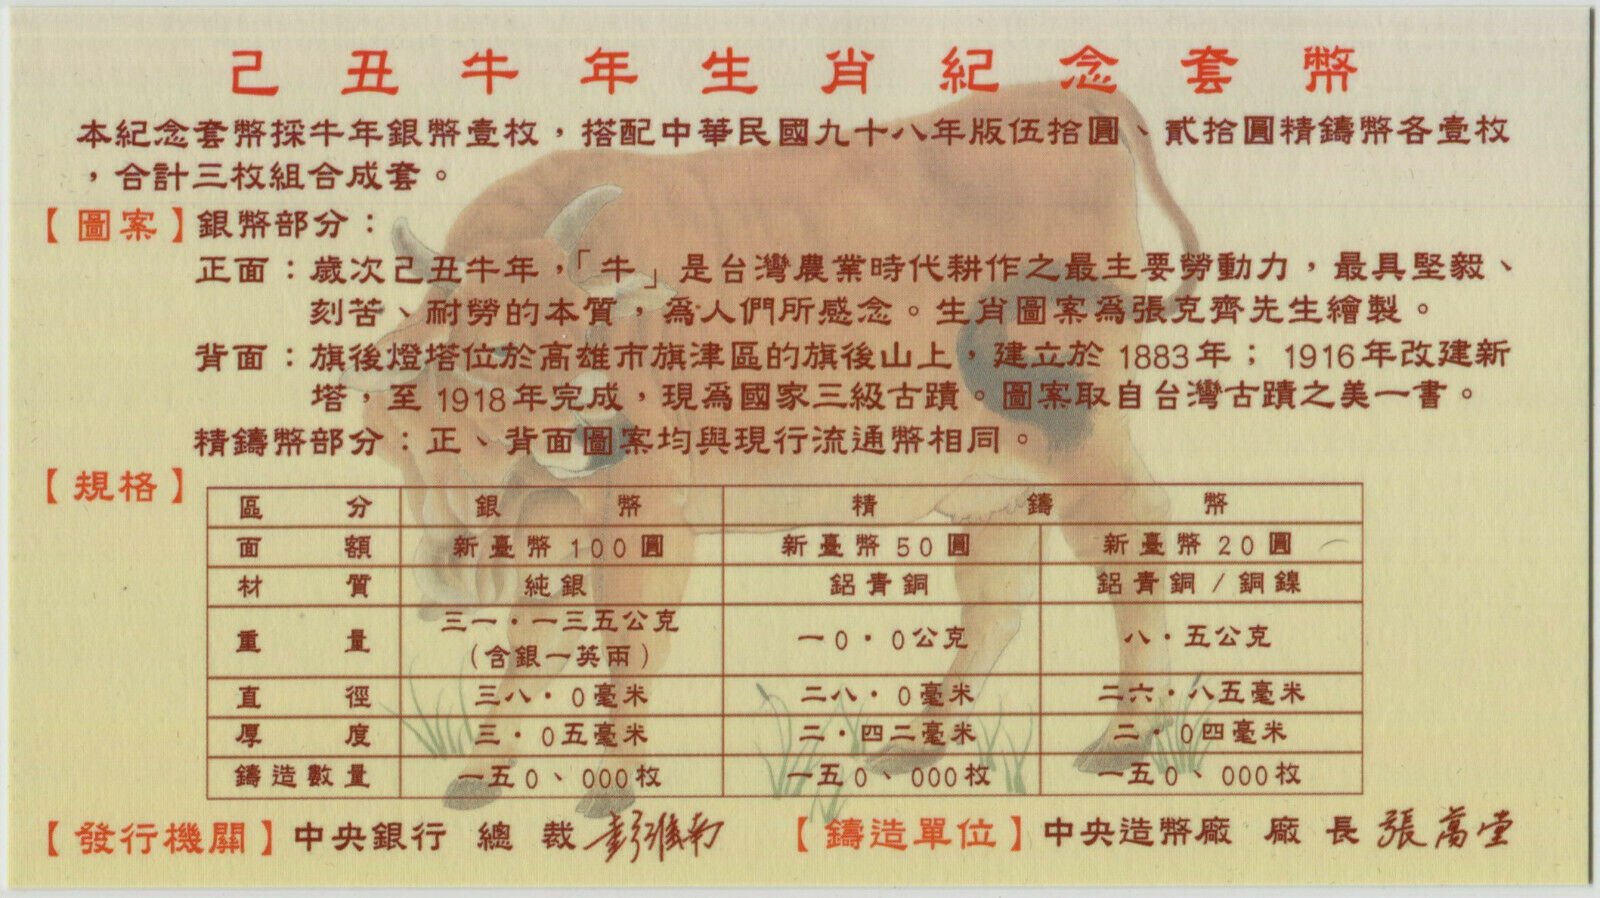 己丑牛年生肖紀念套幣
本紀念套幣採牛年銀幣壹枚，搭配中華民國九十八年版伍拾圓、貳拾圓精鑄幣各壹枚
，合計三枚組合成套。
【圖案】銀幣部分：
正面：歲次己丑牛年，「牛」是台灣農業時代耕作之最主要勞動力，最具堅毅、
刻苦、耐勞的本質，為人們所感念。生肖圖案為張克齊先生繪製。
背面：旗後燈塔位於高雄市旗津區的旗後山上，建立於1883年；1916年改建新
塔，至1918年完成，現為國家三級古蹟。圖案取自台灣古蹟之美一書。
精鑄幣部分：正、背面圖案均與現行流通幣相同。
【規格】
區分 銀幣 精鑄幣
面額 新臺幣100圓 新臺幣50圓 新臺幣20圓
材質 純銀 鋁青銅 鋁青銅/銅鎳
重量 三一．一三五公克（含銀一英兩） 一0．0公克 八．五公克
直徑 三八．0毫米 二八．0毫米 二六．八五毫米
厚度 三．0五毫米 二．四二毫米 二．0四毫米
鑄造數量 一五0、000枚 一五0、000枚 一五0、000枚
【發行機關】中央銀行 總裁 彭淮南 【鑄造單位】中央造幣廠 廠長 張萬堂